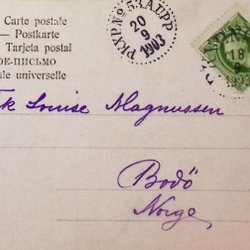 Carte postale
— Postkarte
Tarjeta postal
ОЕ-ПИСЬМО
ale universelle
PKXP. No 53. A. UPP
20
9
1903
18
Louise Magnussen
Bodö
Norge